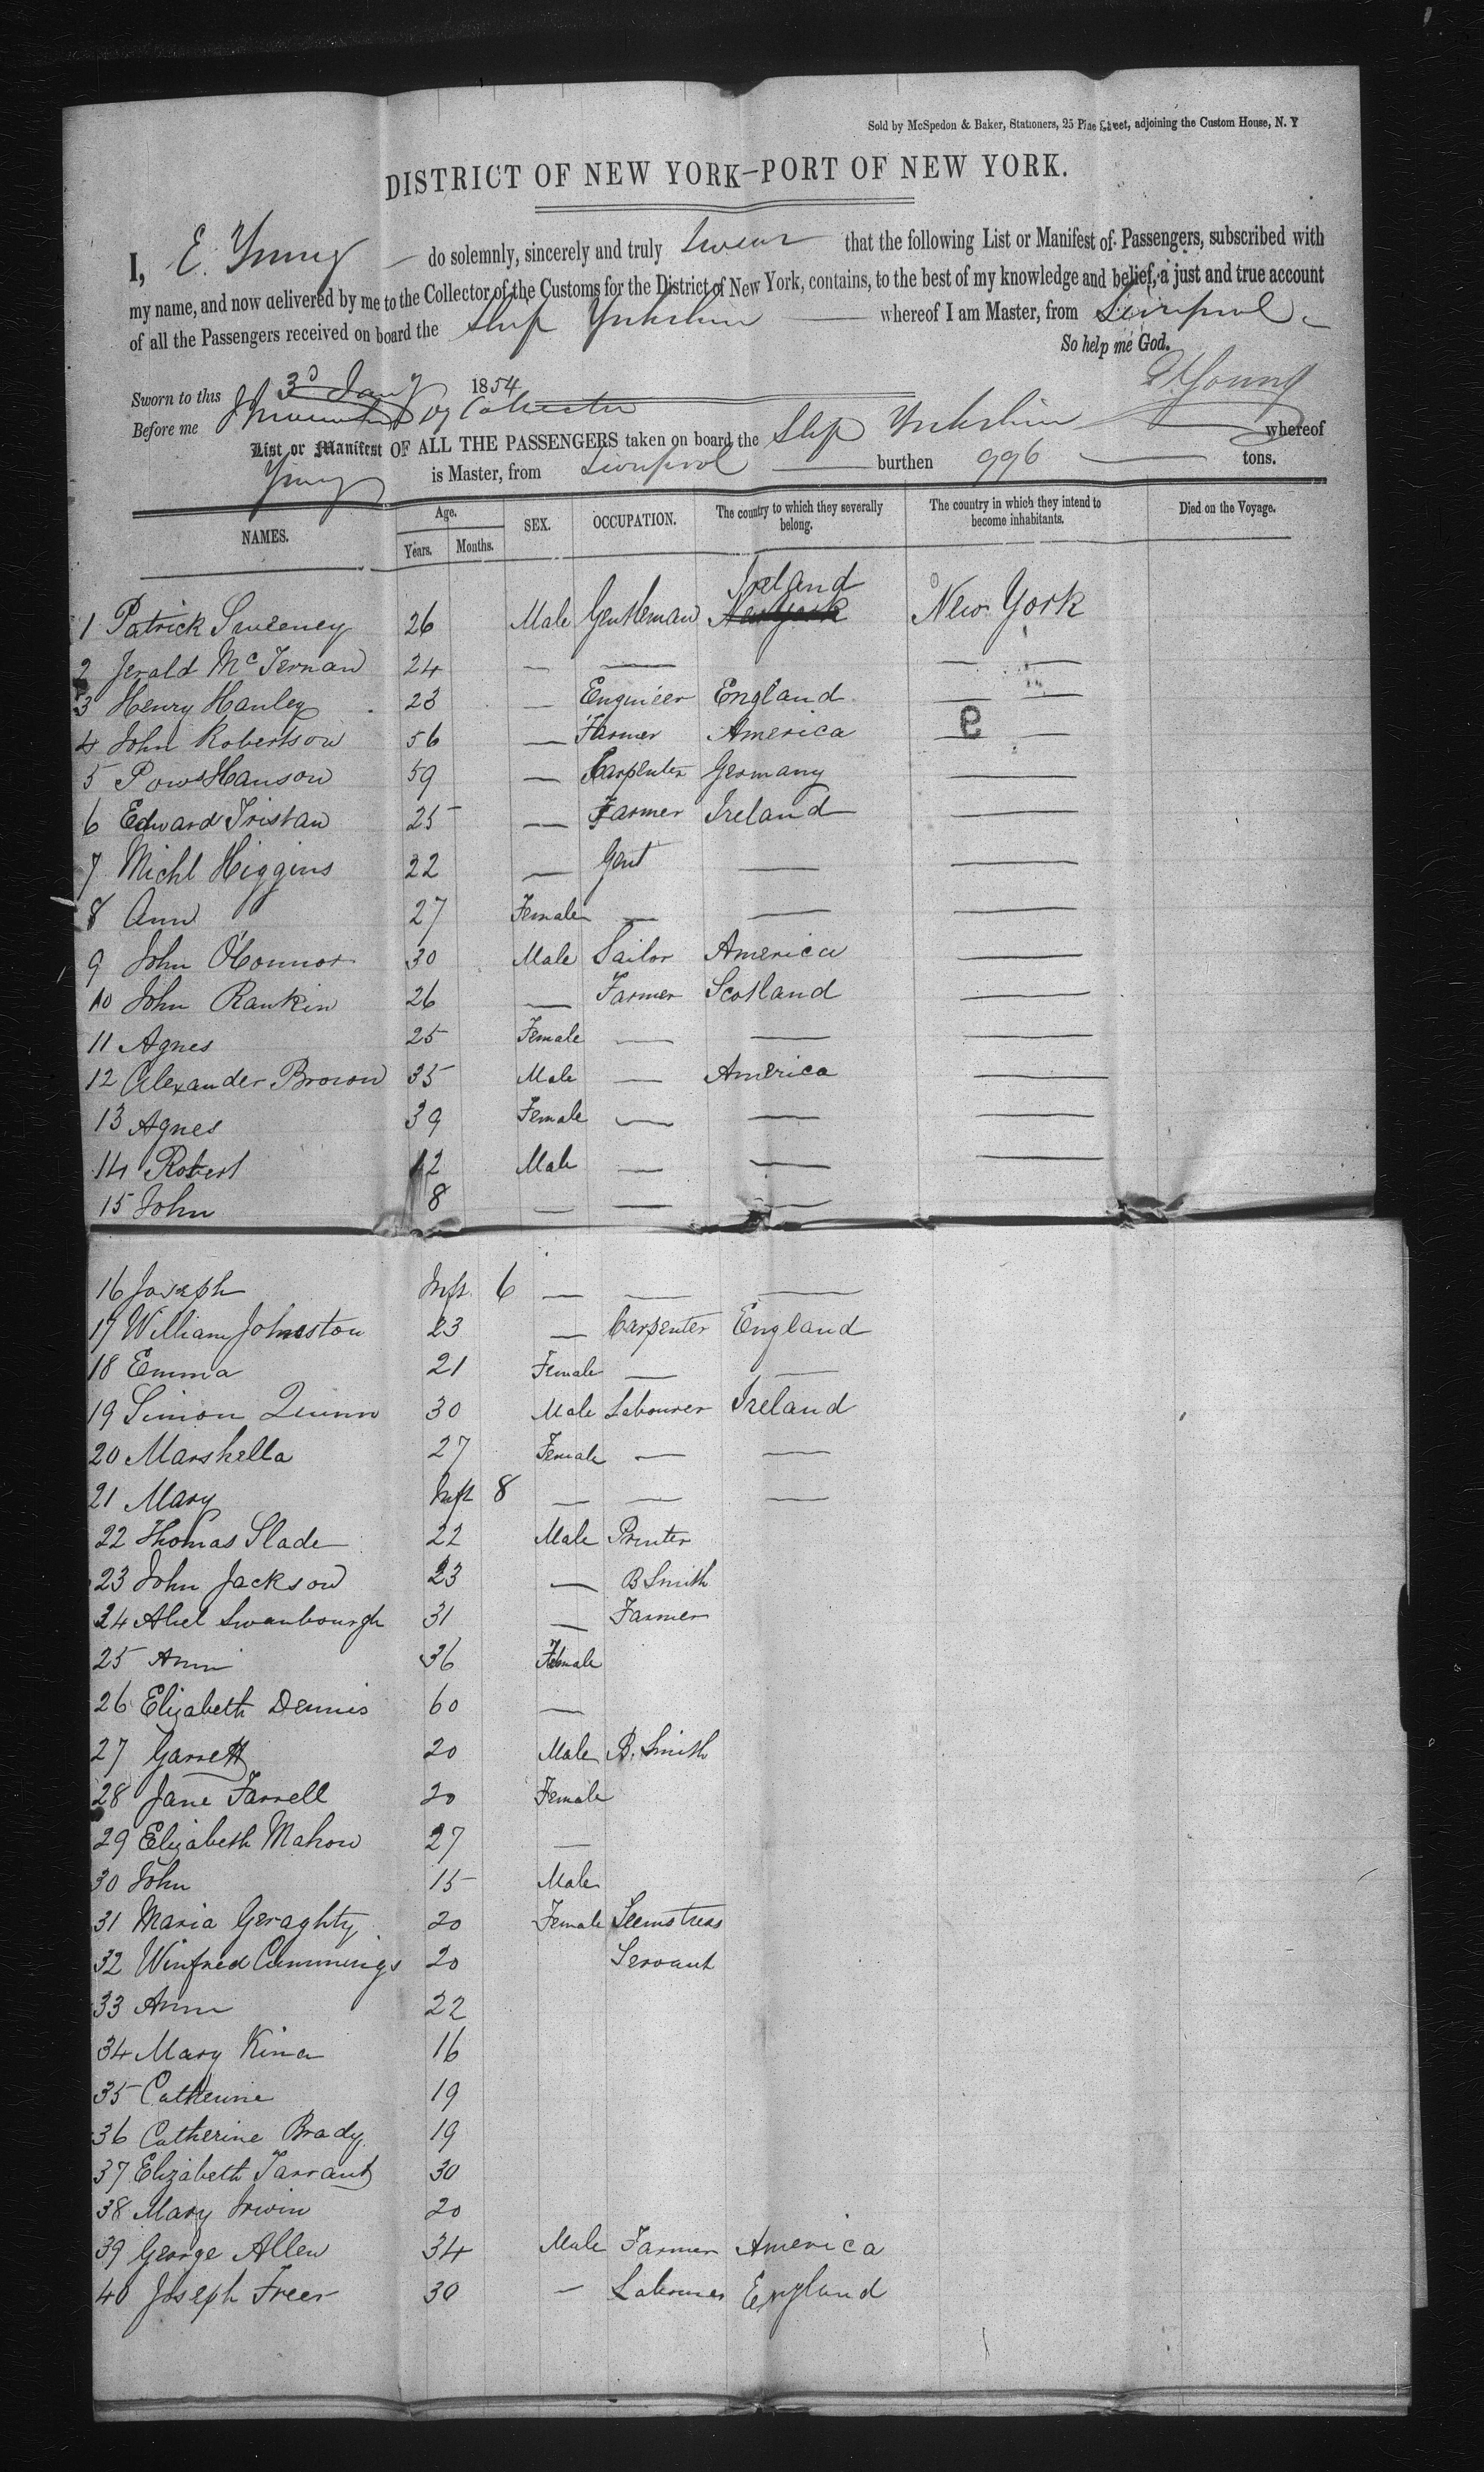 Sold by McSpedon & Baker, Stationers, 25 Pine Street, adjoining the Custom House, N. Y
DISTRICT OF NEW YORK—PORT OF NEW YORK.
I, E. Young — do solemnly, sincerely and truly swear that the following List or Manifest of Passengers, subscribed with
my name, and now delivered by me to the Collector of the Customs for the District of New York, contains, to the best of my knowledge and belief, a just and true account
of all the Passengers received on board the Ship Yorkshire — whereof I am Master, from Liverpool
So help me God.
Sworn to this 3d Jany 1854 E. Young
Before me Collector
List or Manifest OF ALL THE PASSENGERS taken on board the Ship Yorkshire — whereof
Young is Master, from Liverpool — burthen 996 — tons.
NAMES. Age. Years. Months. SEX. OCCUPATION. The country to which they severally belong. The country in which they intend to become inhabitants. Died on the Voyage.
Ireland
1 Patrick Sweeney 26 Male Gentleman New York New York
2 Jerald McTernan 24 — — — —
3 Henry Hanley 23 — Engineer England — —
4 John Robertson 56 — Farmer America — —
5 Hanson 59 — Carpenter Germany —
6 Edward Tristan 25 — Farmer Ireland —
7 Michl Higgins 22 — Gent — —
8 Ann 27 Female — — —
9 John O'Connor 30 Male Sailor America —
10 John Rankin 26 — Farmer Scotland —
11 Agnes 25 Female — — —
12 Alexander Brown 35 Male — America —
13 Agnes 39 Female — — —
14 Robert 12 Male — — —
15 John 8 — — —
16 Joseph Inft. 6 — — —
17 William Johnston 23 — Carpenter England
18 Emma 21 Female — —
19 Simon Quinn 30 Male Labourer Ireland
20 Marshella 27 Female — —
21 Mary Inft 8 — — —
22 Thomas Slade 22 Male Printer
23 John Jackson 23 — B Smith
24 Abel Swanbourgh 31 — Farmer
25 Ann 36 Female
26 Elizabeth Dennis 60 —
27 Garrett 20 Male B. Smith
28 Jane Farrell 20 Female
29 Elizabeth Mahon 27 —
30 John 15 Male
31 Maria Geraghty 20 Female Seemstress
32 Winfred Cummings 20 Servant
33 Ann 22
34 Mary 16
35 Catherine 19
36 Catherine Brady 19
37 Elizabeth Tarrant 30
38 Mary Irwin 20
39 George Allen 34 Male Farmer America
40 Joseph Freer 30 — Labourer England